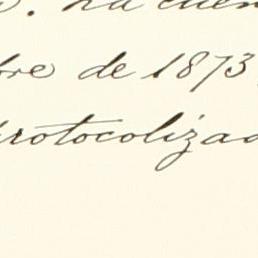 . La cuen
bre de 1873
protocolizad